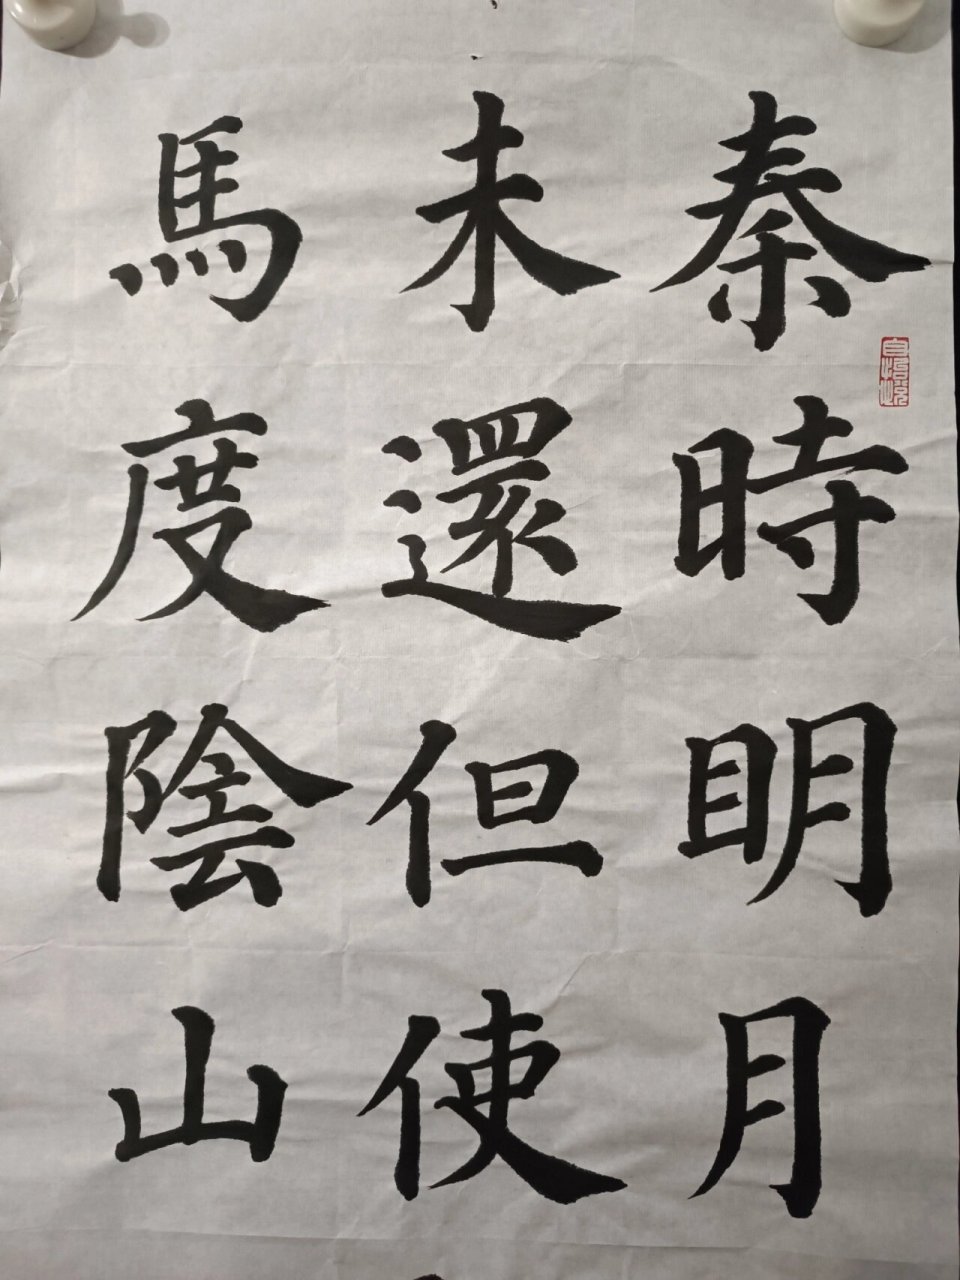 秦時明月
未還但使
馬度陰山